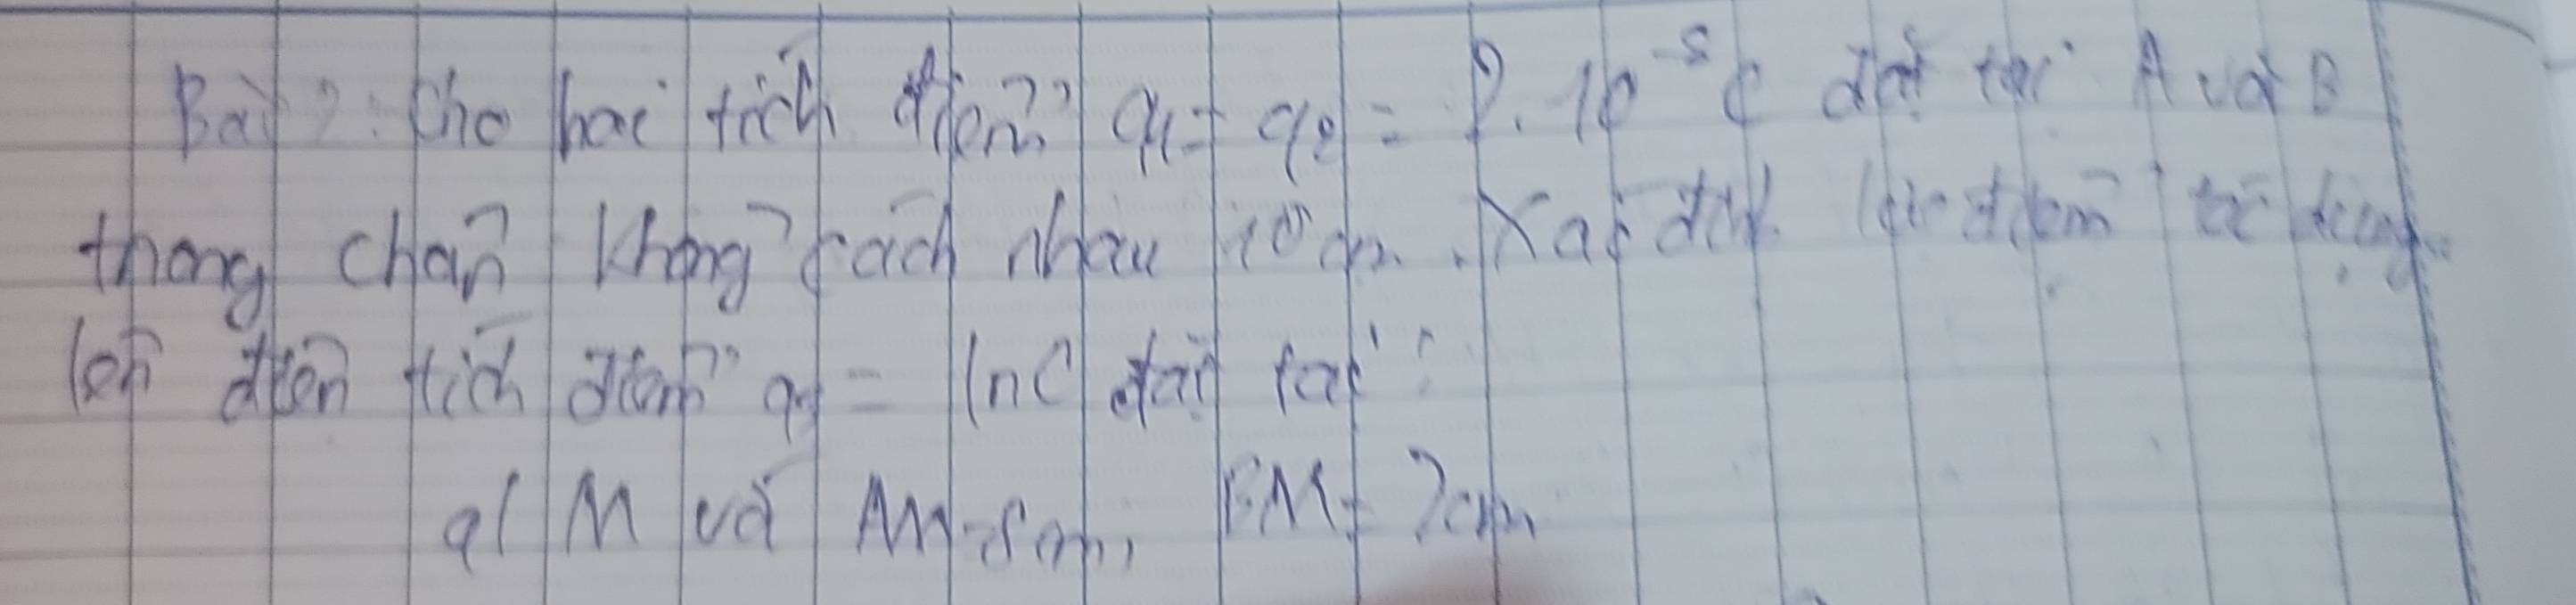 Bài 2: Cho hai tích điểm q1 = q2 = 10 C đặt tại A và B
trong chân không cách nhau 10 cm. Xác định lực điểm tác dụng
lên điện tích điểm q = 1nC đặt tại:
a/ M và AM = cm, BM = 7cm